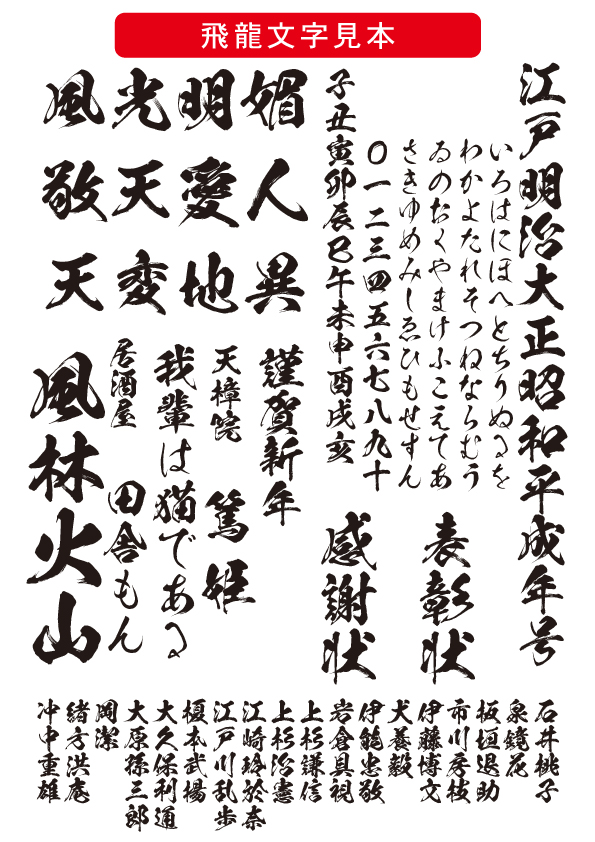 飛龍文字見本
江戸明治大正昭和平成年号
いろはにほへとちりぬるを
わかよたれそつねならむう
ゐのおくやまけふこえてあ
さきゆめみしゑひもせすん
〇一二三四五六七八九十
子丑寅卯辰巳午未申酉戌亥
表彰状
感謝状
媚人異
明愛地
光天変
風敬天
謹賀新年
天樟院
篤姫
我輩は猫である
居酒屋
田舎もん
風林火山
石井桃子
泉鏡花
板垣退助
市川房枝
伊藤博文
犬養毅
伊能忠敬
岩倉具視
上杉謙信
上杉治憲
江崎玲於奈
江戸川乱歩
榎本武揚
大久保利通
大原孫三郎
岡潔
緒方洪庵
沖中重雄